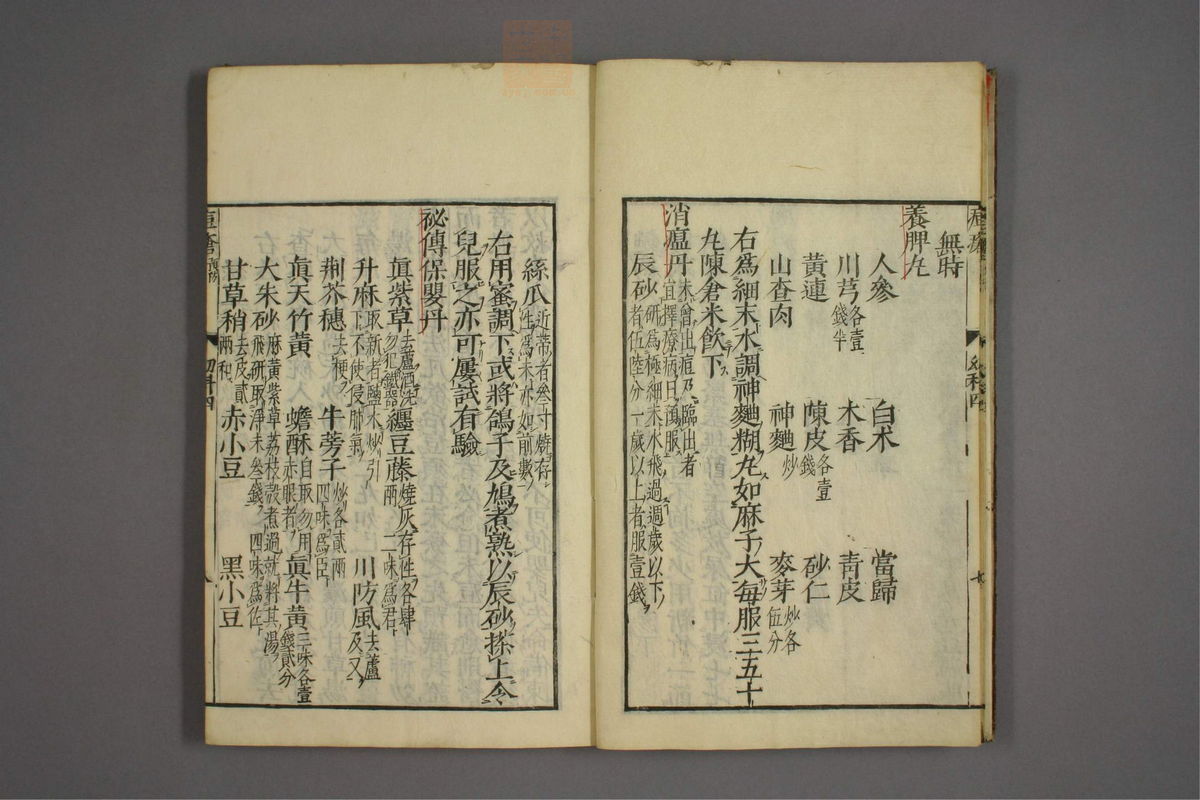 無時
養脾丸
人參 白朮 當歸
川芎各壹錢半 木香 青皮
黃連 陳皮各壹錢 砂仁
山查肉 神麯炒 麥芽炒各伍分
右為細末水調神麯糊丸如麻子大每服三五十
丸陳倉米飲下
消𤵸丹未曾出痘及臨出者宜擇療病日蜜服
辰砂研為極細末水飛過週歲以下者伍陸分一歲以上者服壹錢
絲瓜近蒂者叁寸燒存性為末亦如前數
右用蜜調下或將鴿子及鳩煮熟以辰砂搽上令
兒服之亦可屢試有驗
祕傳保嬰丹
眞紫草去蘆酒洗勿犯鐵器 纏豆藤燒灰存性各肆兩二味為君
升麻取新者鹽水炒引下不使侵肺氣 川防風去蘆及叉
荆芥穗去梗 牛蒡子炒各貳兩四味為臣
眞天竹黃 蟾酥自取勿用赤眼者 眞牛黃三味各壹錢貳分
大朱砂麻黃紫草荔枝殼煮過就料其湯飛研取淨末叁錢四味為佐
甘草稍去皮貳兩和 赤小豆 黑小豆